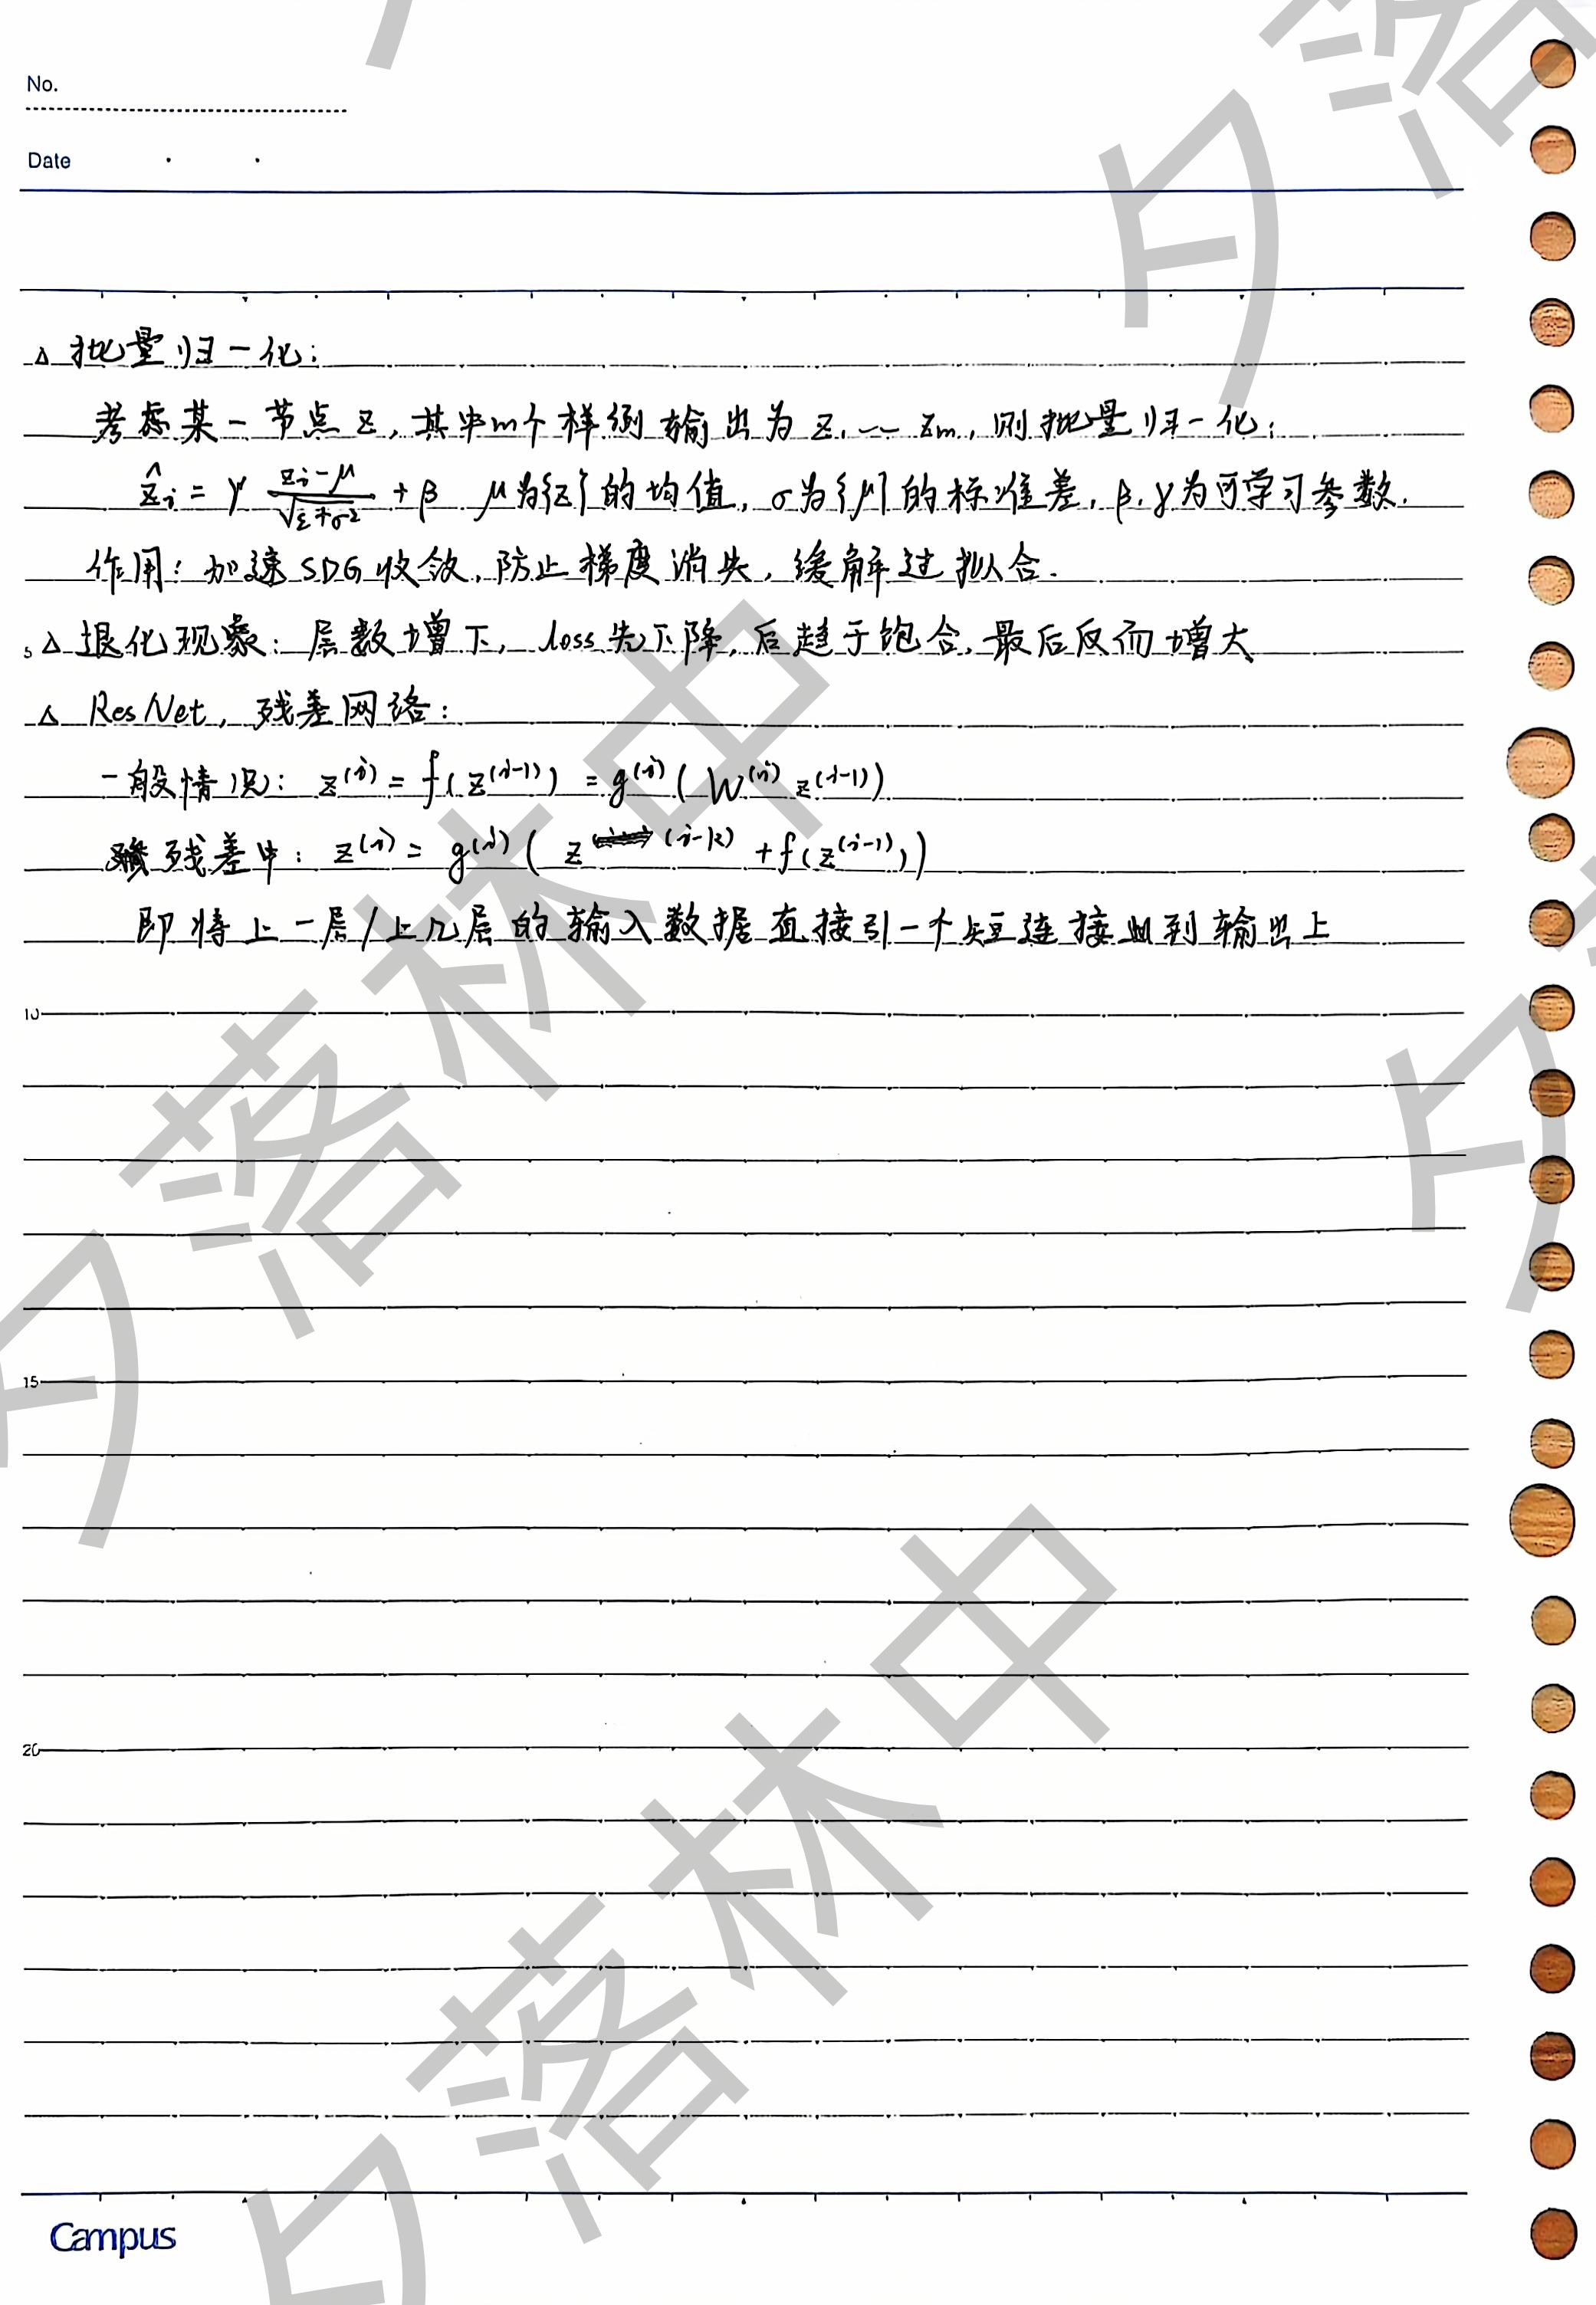 No.
Date
△ 批量归一化:
考虑某一节点 z, 其中m个样例输出为 z₁ … zₘ, 则批量归一化:
ẑᵢ = γ (zᵢ-μ)/√(ε+σ²) + β μ为{z}的均值, σ为{μ}的标准差, β, γ为可学习参数.
作用: 加速 SDG 收敛, 防止梯度消失, 缓解过拟合.
5 △ 退化现象: 层数增下, loss先下降, 后趋于饱合, 最后反而增大
△ ResNet, 残差网络:
一般情况: z⁽ⁱ⁾ = f(z⁽ⁱ⁻¹⁾) = g⁽ⁱ⁾(W⁽ⁱ⁾ z⁽ⁱ⁻¹⁾)
残差中: z⁽ⁱ⁾ = g⁽ⁱ⁾(z⁽ⁱ⁻ᵏ⁾ + f(z⁽ⁱ⁻¹⁾))
即将上一层/上几层的输入数据直接引一个短连接到输出上
10
15
20
Campus
夕落林中
夕落林中
夕落
夕